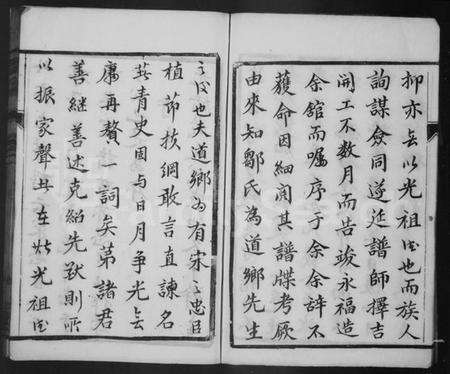 抑亦無以光祖德也而族人
詢謀僉同遂延譜師擇吉
開工不数月而告竣永福造
余館而囑序于余余辞不
獲命因細閱其譜牒考厥
由來知鄒氏為道鄉先生
之後也夫道鄉為有宋之忠臣
植節扶綱敢言直諫名
㷼青史固与日月争光無
庸再贅一詞矣第諸君
善継善述克紹先猷則所
以振家聲者在此光祖德